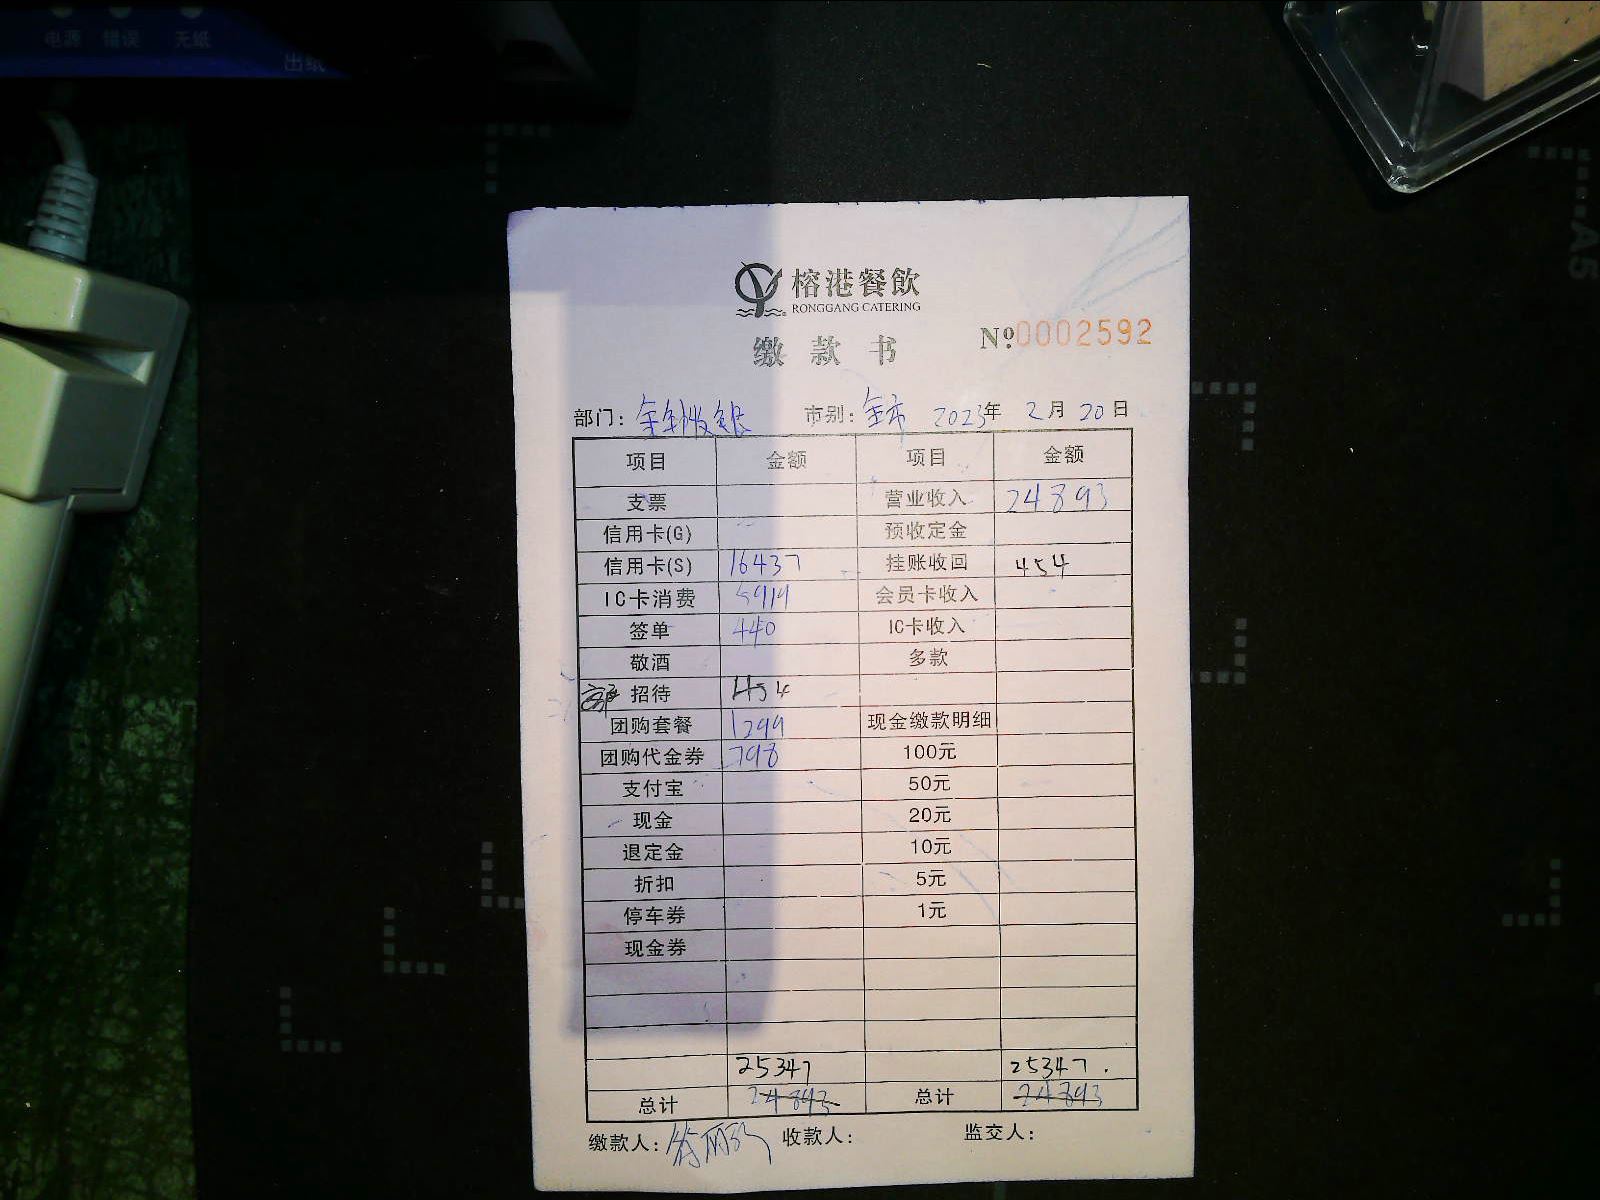 电源 错误 无纸
出纸
A5
榕港餐飲
RONGGANG CATERING
缴款书
Nº:0002592
部门: 市别:全市 2023年 2月 20日
项目 金额 项目 金额
支票 营业收入 24893
信用卡(G) 预收定金
信用卡(S) 16437 挂账收回 454
IC卡消费 5919 会员卡收入
签单 440 IC卡收入
敬酒 多款
招待 454
团购套餐 1299 现金缴款明细
团购代金券 798 100元
支付宝 50元
现金 20元
退定金 10元
折扣 5元
停车券 1元
现金券
25347 25347.
总计 24893 总计 24893
缴款人: 收款人: 监交人: